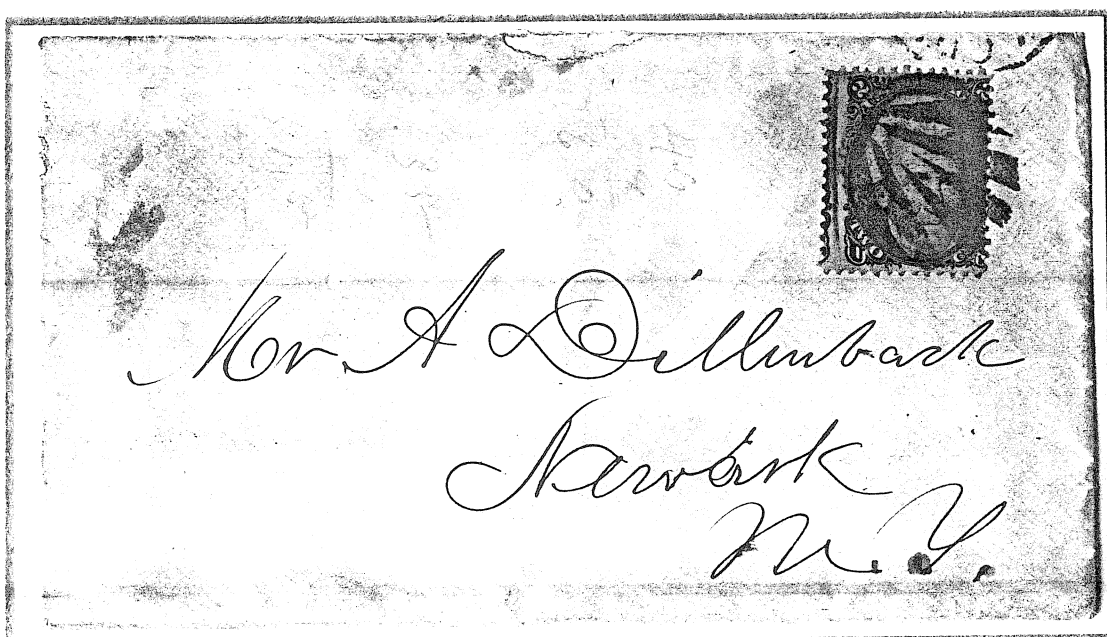 Mr. A Dillenback
Newark
N. Y.
TWO
U